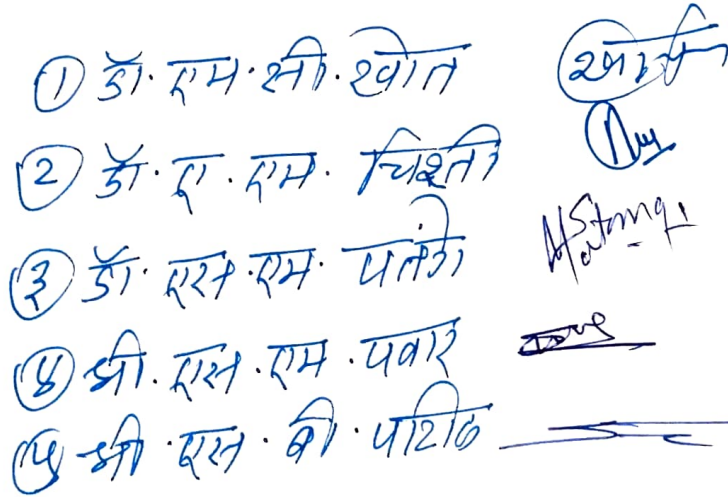 ① डॉ. एम. सी. खोत
② डॉ. ए. एम. चिश्ती
③ डॉ. एस. एम. पतंगे
④ श्री. एस. एम. पवार
⑤ श्री. एस. बी. पाटील